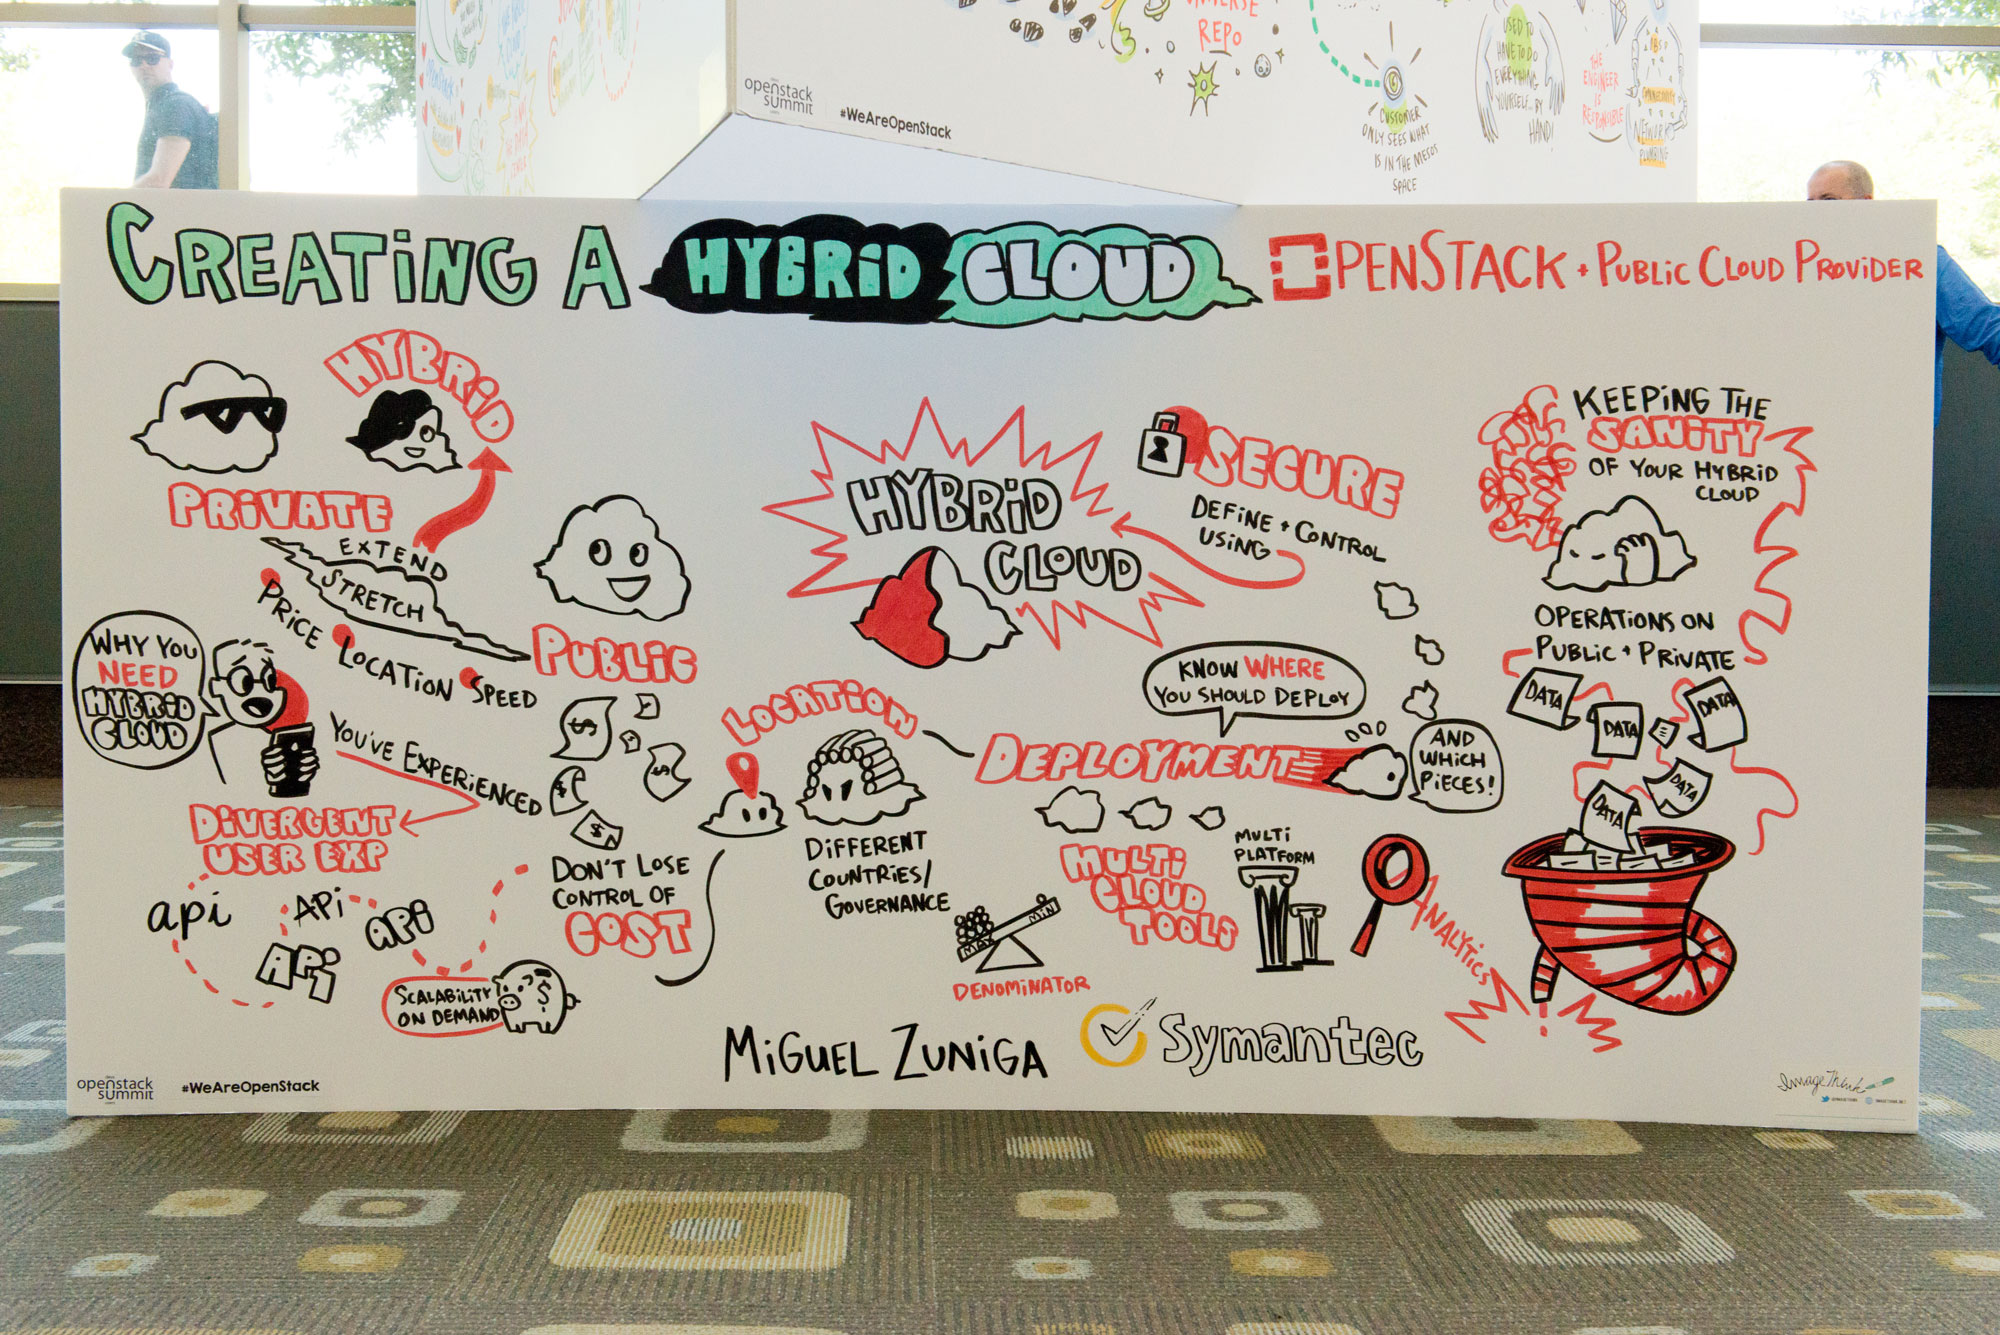 UNIVERSE
REPO
openstack
summit
#WeAreOpenStack
CUSTOMER
ONLY SEES WHAT
IS IN THE MESOS
SPACE
USED TO
HAVE TO DO
EVERYTHING
YOURSELF... BY
HAND!
THE
ENGINEER
IS
RESPONSIBLE
NETWORK
PLUMBING
CREATING A HYBRID CLOUD OPENSTACK + PUBLIC CLOUD PROVIDER
HYBRID
PRIVATE
EXTEND
STRETCH
PRICE LOCATION SPEED
PUBLIC
WHY YOU
NEED
HYBRID
CLOUD
YOU'VE EXPERIENCED
DIVERGENT
USER EXP
api
API
API
API
$
$
$
$
DON'T LOSE
CONTROL OF
COST
SCALABILITY
ON DEMAND
$
HYBRID
CLOUD
SECURE
DEFINE + CONTROL
USING
LOCATION
DIFFERENT
COUNTRIES/
GOVERNANCE
KNOW WHERE
YOU SHOULD DEPLOY
DEPLOYMENT
AND
WHICH
PIECES!
MAX
MIN
DENOMINATOR
MULTI
CLOUD
TOOLS
MULTI
PLATFORM
ANALYTICS
KEEPING THE
SANITY
OF YOUR HYBRID
CLOUD
OPERATIONS ON
PUBLIC + PRIVATE
DATA
DATA
DATA
DATA
DATA
MIGUEL ZUNIGA
Symantec
openstack
summit
#WeAreOpenStack
ImageThink